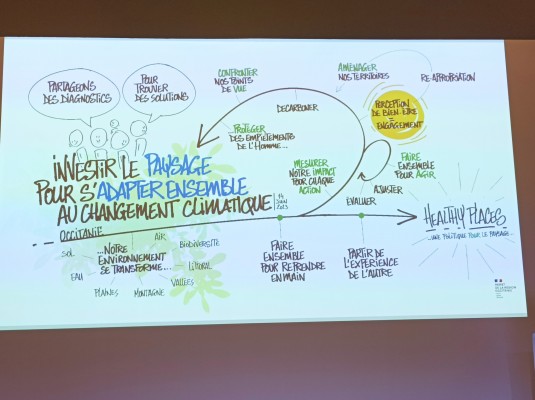 PARTAGEONS
DES DIAGNOSTICS
POUR
TROUVER
DES SOLUTIONS
CONFRONTER
NOS POINTS
DE VUE
AMÉNAGER
NOS TERRITOIRES
RE-APPROPRIATION
DECARBONER
PERCEPTION
DE BIEN-ÊTRE
=
ENGAGEMENT
PROTÉGER
DES EMPIÈTEMENTS
DE L'HOMME...
MESURER
NOTRE IMPACT
POUR CHAQUE
ACTION
FAIRE
ENSEMBLE
POUR AGIR
INVESTIR LE PAYSAGE
POUR S'ADAPTER ENSEMBLE
AU CHANGEMENT CLIMATIQUE
14
JUIN
2023
AJUSTER
EVALUER
HEALTHY PLACES
...UNE POLITIQUE POUR LE PAYSAGE...
OCCITANIE
SOL
EAU
PLAINES
MONTAGNE
VALLÉES
LITTORAL
BIODIVERSITÉ
AIR
...NOTRE
ENVIRONNEMENT
SE TRANSFORME...
FAIRE
ENSEMBLE
POUR REPRENDRE
EN MAIN
PARTIR DE
L'EXPÉRIENCE
DE L'AUTRE